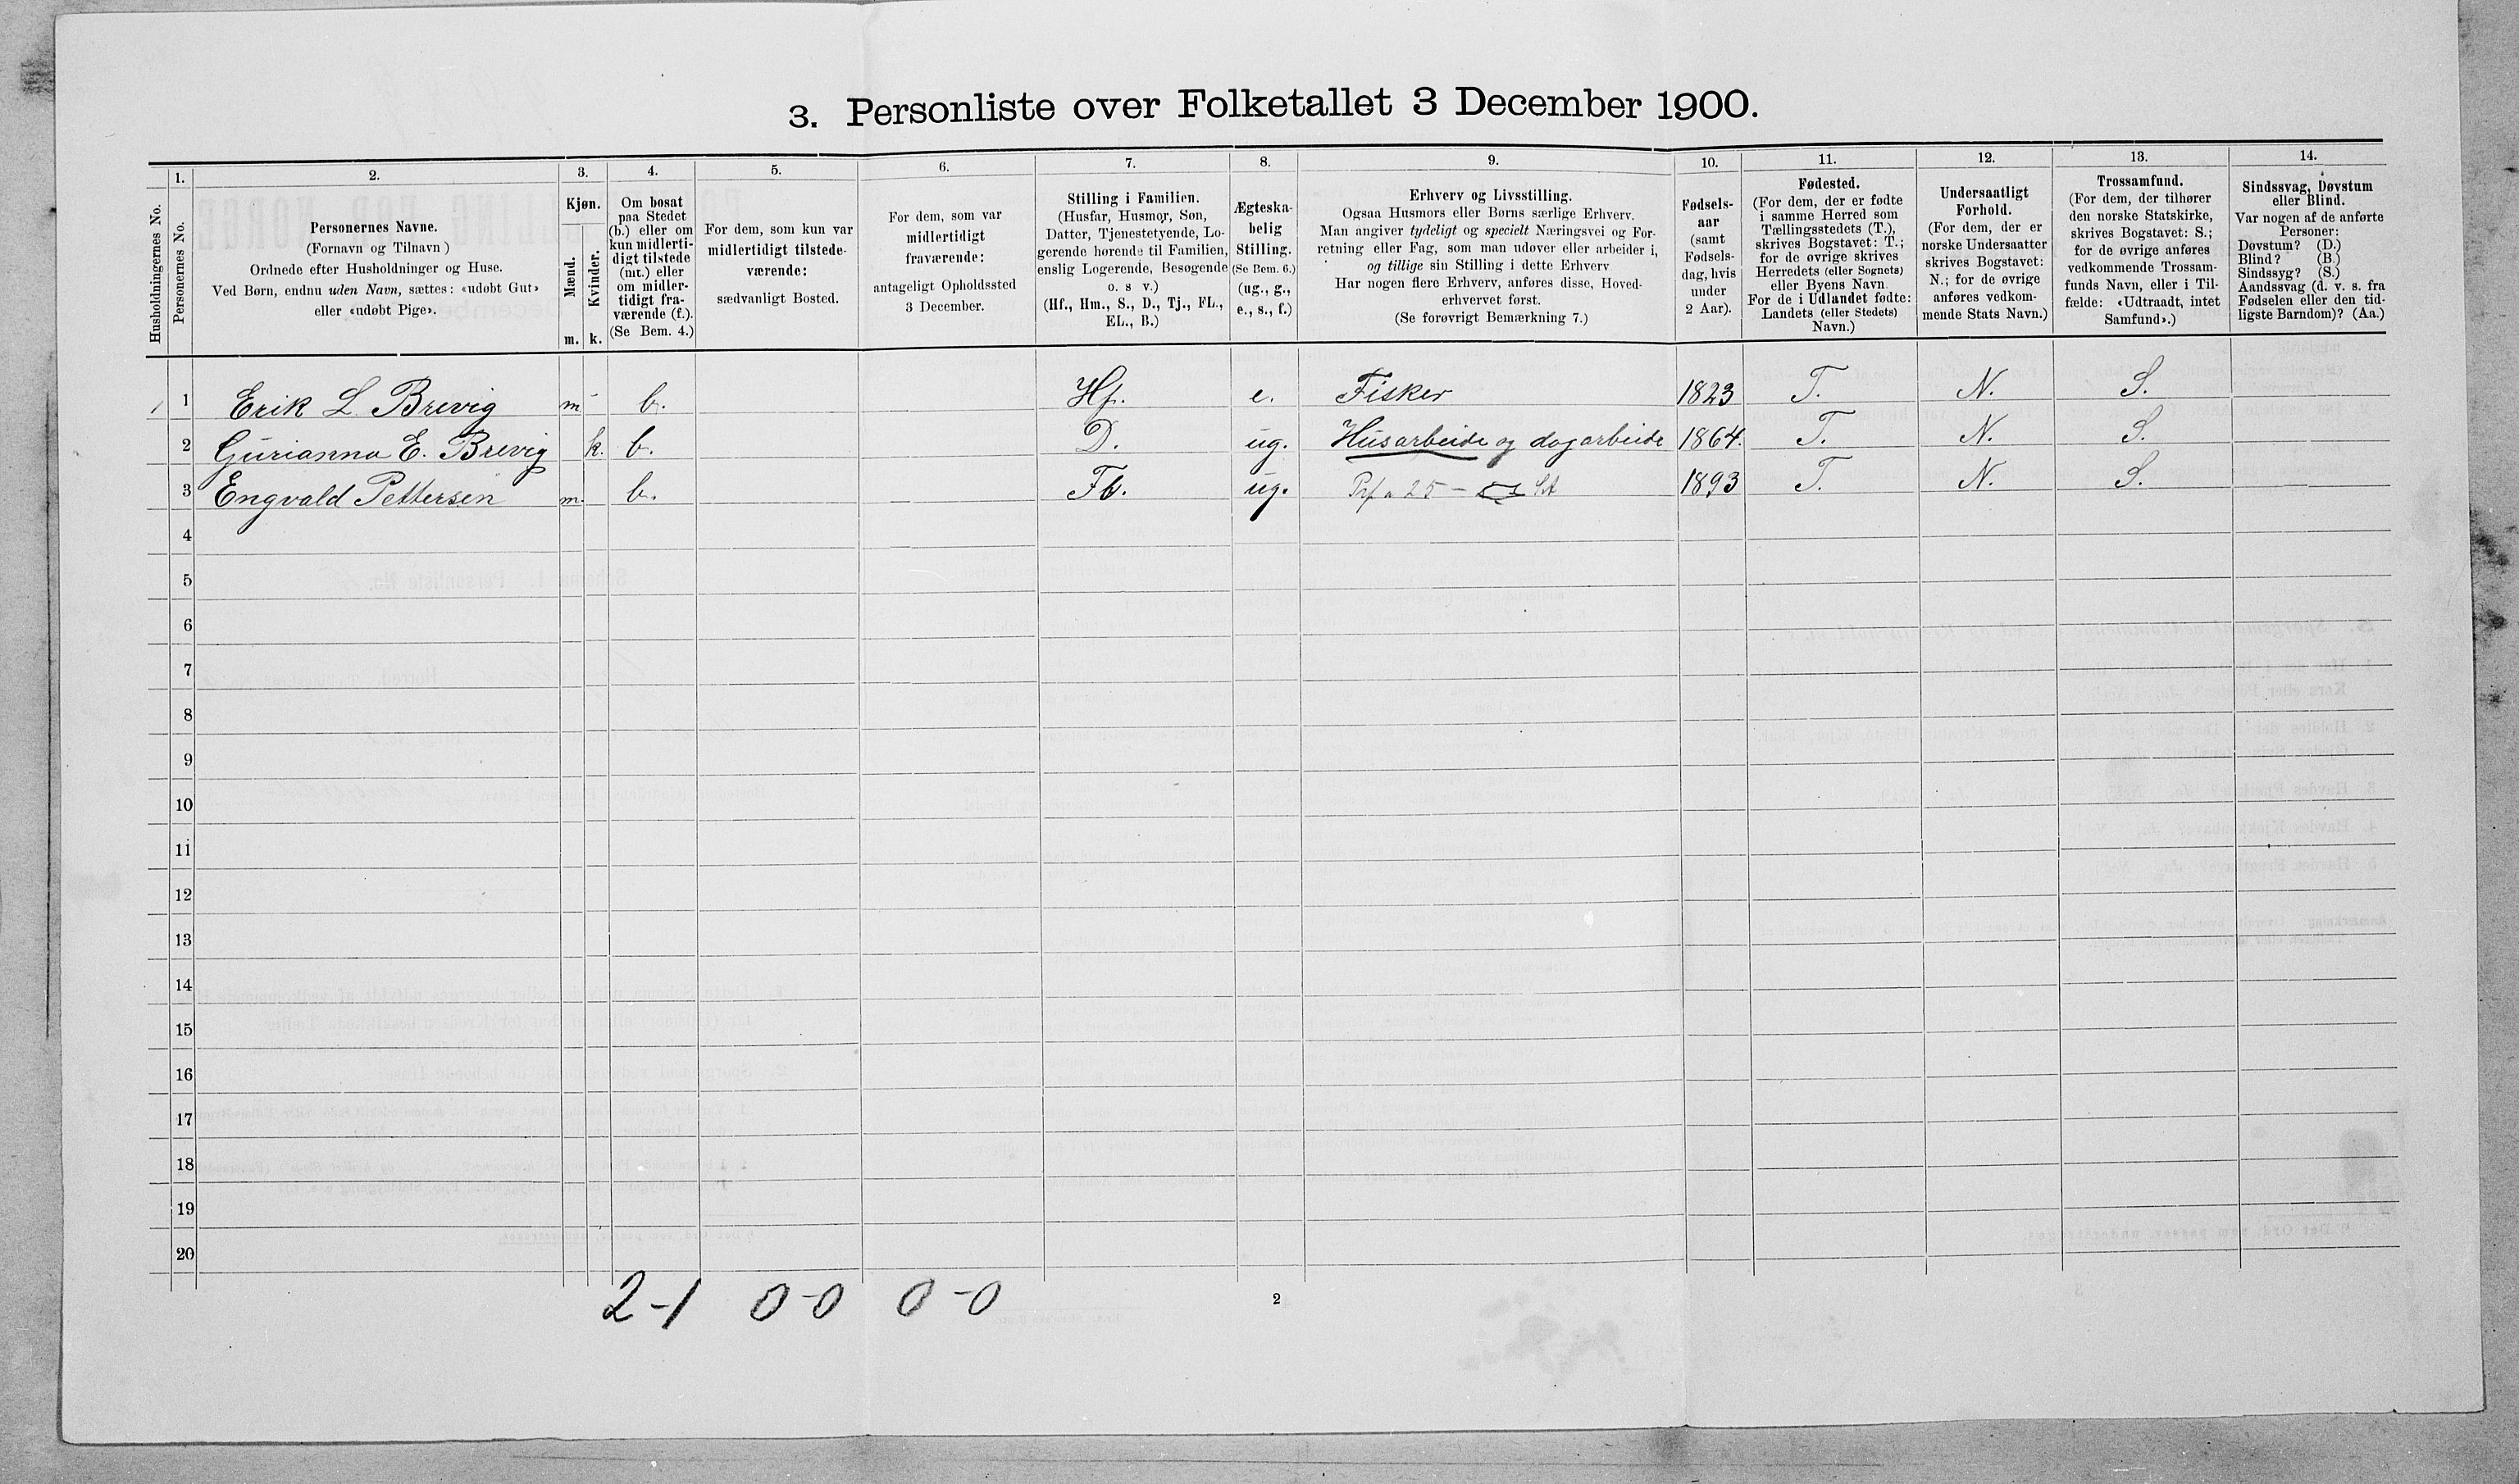 3. Personliste over Folketallet 3 December 1900.
Husholdningernes No.
1.
Personernes No.
2.
Personernes Navne.
(Fornavn og Tilnavn)
Ordnede efter Husholdninger og Huse.
Ved Børn, endnu uden Navn, sættes: «udøbt Gut»
eller «udøbt Pige».
3.
Kjøn.
Mænd.
Kvinder.
m. k.
4.
Om bosat
paa Stedet
(b.) eller om
kun midlerti-
digt tilstede
(mt.) eller
om midler-
tidigt fra-
værende (f.).
(Se Bem. 4.)
5.
For dem, som kun var
midlertidigt tilstede-
værende:
sædvanligt Bosted.
6.
For dem, som var
midlertidigt
fraværende:
antageligt Opholdssted
3 December.
7.
Stilling i Familien.
(Husfar, Husmor, Søn,
Datter, Tjenestetyende, Lo-
gerende hørende til Familien,
enslig Logerende, Besøgende
o. s v.)
(Hf., Hm., S., D., Tj., FL.,
EL., B.)
8.
Ægteska-
belig
Stilling.
(Se Bem. 6.)
(ug., g.,
e., s., f.)
9.
Erhverv og Livsstilling.
Ogsaa Husmors eller Børns særlige Erhverv.
Man angiver tydeligt og specielt Næringsvei og For-
retning eller Fag, som man udøver eller arbeider i,
og tillige sin Stilling i dette Erhverv
Har nogen flere Erhverv, anføres disse, Hoved-
erhvervet først.
(Se forøvrigt Bemærkning 7.)
10.
Fødsels-
aar
(samt
Fødsels-
dag, hvis
under
2 Aar).
11.
Fødested.
(For dem, der er fødte
i samme Herred som
Tællingsstedets (T.),
skrives Bogstavet: T.;
for de øvrige skrives
Herredets (eller Sognets)
eller Byens Navn.
For de i Udlandet fødte:
Landets (eller Stedets)
Navn.)
12.
Undersaatligt
Forhold.
(For dem, der er
norske Undersaatter
skrives Bogstavet:
N.; for de øvrige
anføres vedkom-
mende Stats Navn.)
13.
Trossamfund.
(For dem, der tilhører
den norske Statskirke,
skrives Bogstavet: S.;
for de øvrige anføres
vedkommende Trossam-
funds Navn, eller i Til-
fælde: «Udtraadt, intet
Samfund».)
14.
Sindssvag, Døvstum
eller Blind.
Var nogen af de anførte
Personer:
Døvstum? (D.)
Blind? (B.)
Sindssyg? (S.)
Aandssvag (d. v. s. fra
Fødselen eller den tid-
ligste Barndom)? (Aa.)
1 1 Erik L Brevig m b. Hf. e. Fisker 1823 T. N. S.
2 Gurianna E. Brevig k. b. D. ug. Husarbeide og dagarbeide 1864. T. N. S.
3 Engvald Pettersen m. b. ug. 1893 T. N. S.
4
5
6
7
8
9
10
11
12
13
14
15
16
17
18
19
20
2-1 0-0 0-0
2